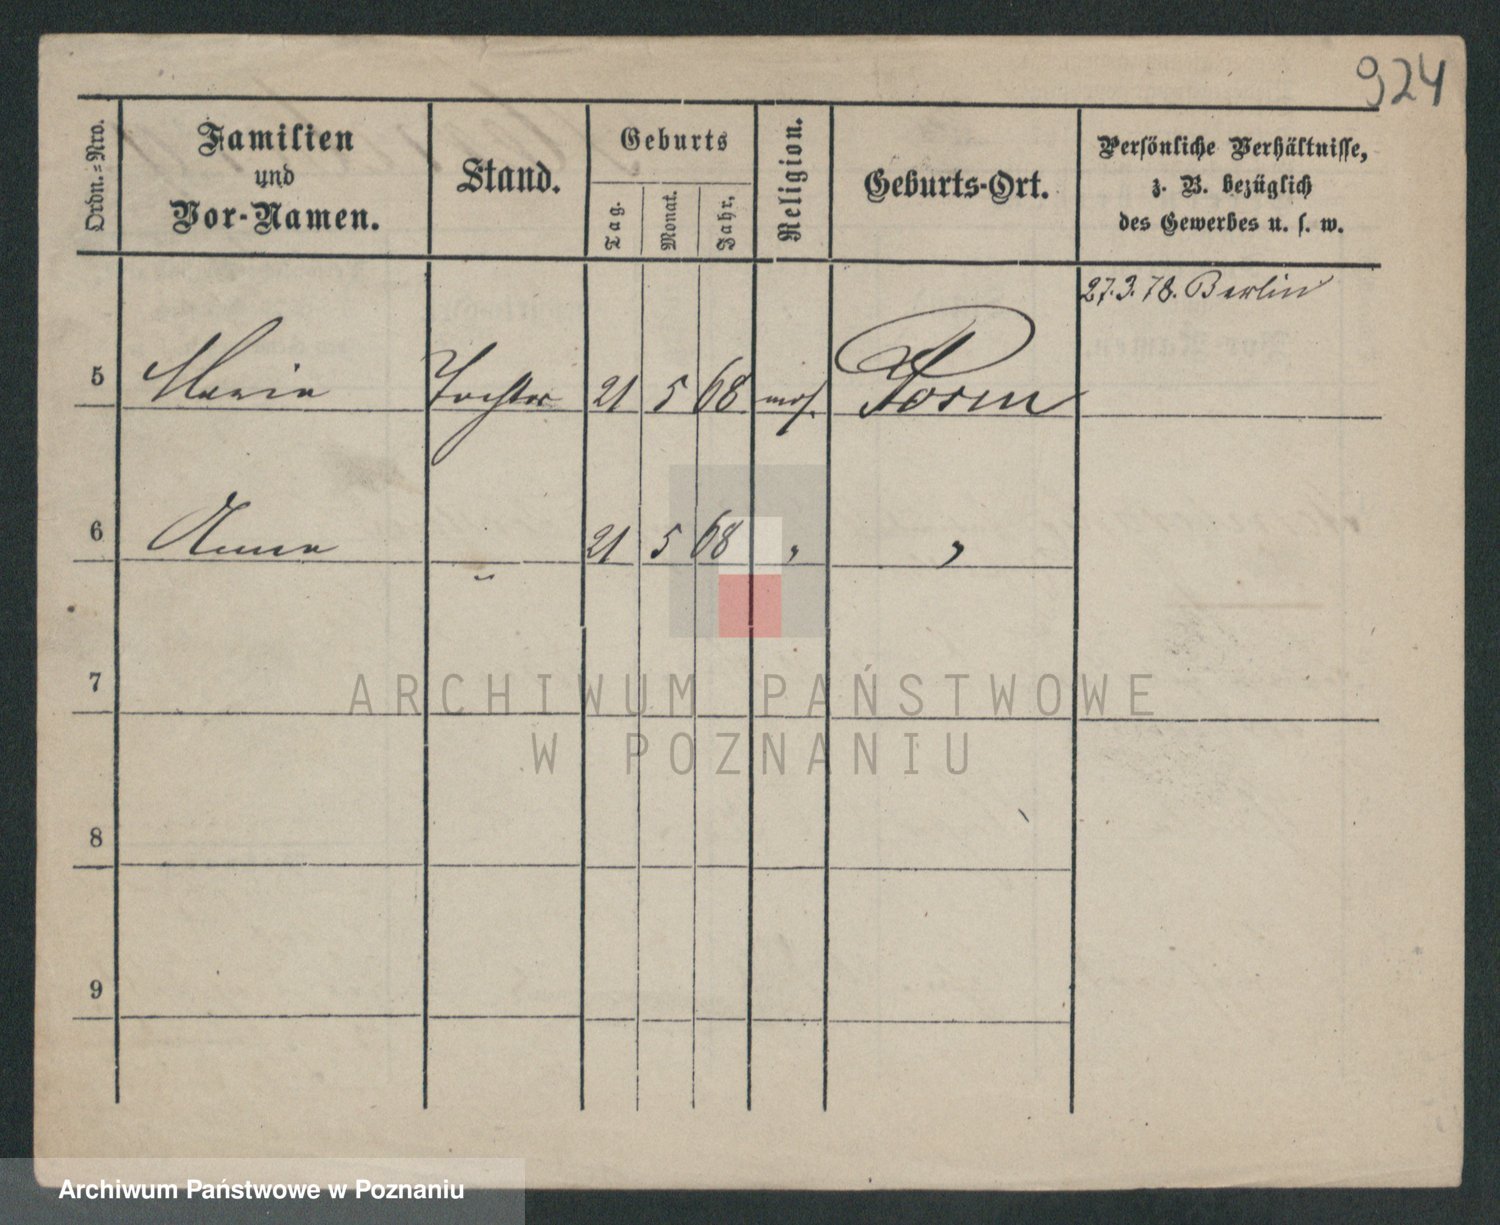 924
Ordn.=Nro.
Familien
und
Vor-Namen.
Stand.
Geburts
Tag.
Monat.
Jahr.
Religion.
Geburts-Ort.
Persönliche Verhältnisse,
z. B. bezüglich
des Gewerbes u. s. w.
27.3.78. Berlin
5 Maria Tochter 21 5 68 mos. Posen
6 Anna " 21 5 68 " "
7
8
9
ARCHIWUM PAŃSTWOWE
W POZNANIU
Archiwum Państwowe w Poznaniu